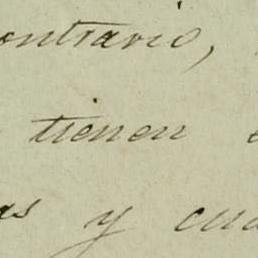 ontrario,
tienen
as y cua